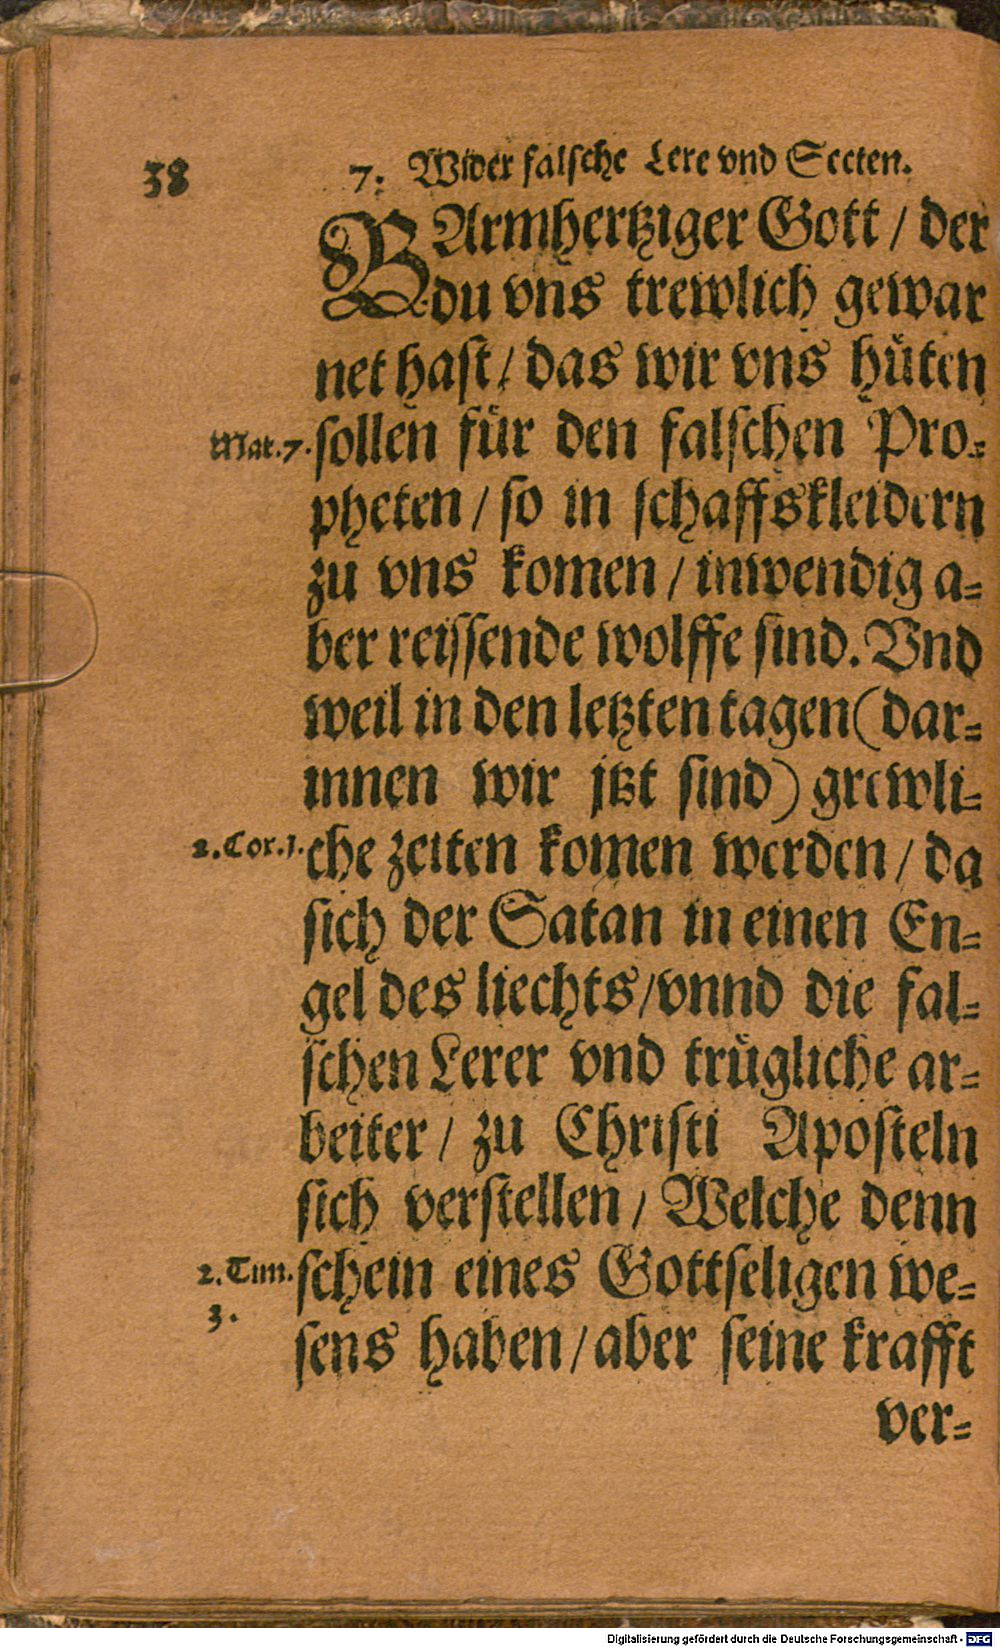 38
7. Wider falsche Lere vnd Secten.
BArmhertziger Gott / der
du vns trewlich gewar
net hast / das wir vns hüten
Mat. 7. sollen für den falschen Pro-
pheten / so in schaffskleidern
zu vns komen / inwendig a-
ber reissende wolffe sind. Vnd
weil in den letzten tagen (dar-
innen wir jtzt sind) grewli-
2. Cor. 1. che zeiten komen werden / da
sich der Satan in einen En-
gel des liechts / vnnd die fal-
schen Lerer vnd trügliche ar-
beiter / zu Christi Aposteln
sich verstellen / Welche denn
2. Tim. schein eines Gottseligen we-
3.
sens haben / aber seine krafft
ver-
Digitalisierung gefördert durch die Deutsche Forschungsgemeinschaft - DFG